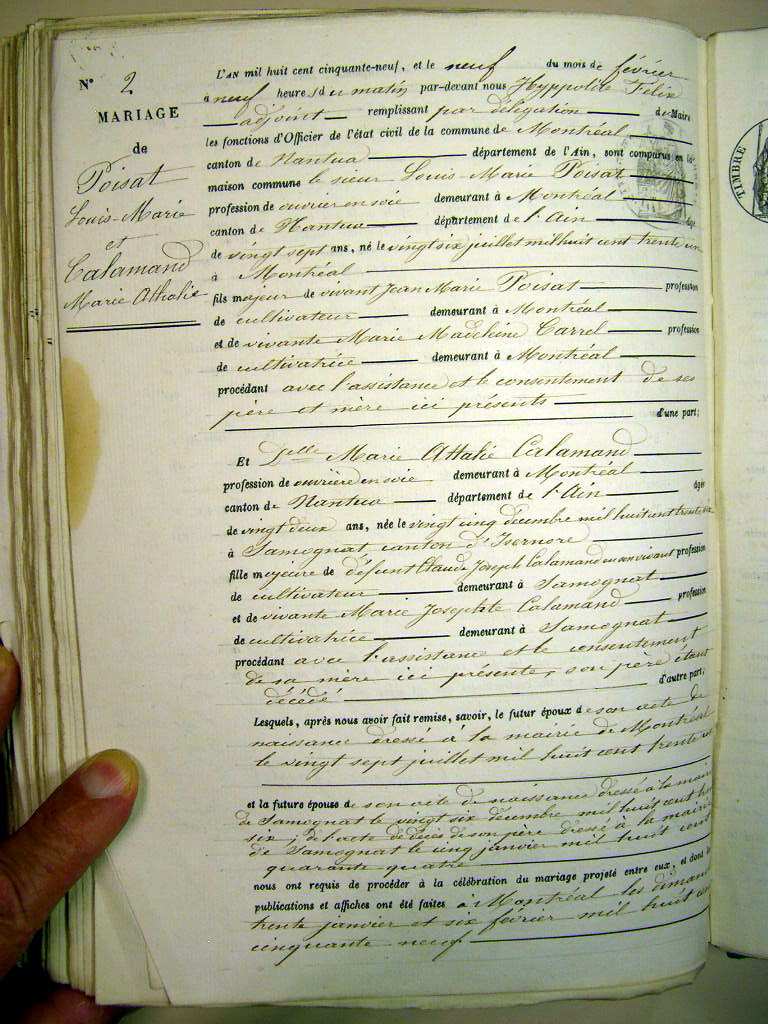 N° 2
MARIAGE
de
Poisat
Louis-Marie
et
Calamand
Marie Athalie
L'AN mil huit cent cinquante-neuf, et le neuf du mois de février
à neuf heures du matin par-devant nous Hyppolite Félix
adjoint remplissant par délégation de Maire
les fonctions d'Officier de l'état civil de la commune de Montréal
canton de Nantua département de l'Ain, sont comparus en la
maison commune le sieur Louis-Marie Poisat
profession de ouvrier en soie demeurant à Montréal
canton de Nantua département de l'Ain âgé
de vingt sept ans, né le vingt six juillet mil huit cent trente un
à Montréal
fils majeur de vivant Jean Marie Poisat profession
de cultivateur demeurant à Montréal
et de vivante Marie Madeleine Carrel profession
de cultivatrice demeurant à Montréal
procédant avec l'assistance et le consentement de ses
père et mère ici présents
d'une part;
Et Delle Marie Athalie Calamand
profession de ouvrière en soie demeurant à Montréal
canton de Nantua département de l'Ain âgée
de vingt deux ans, née le vingt cinq décembre mil huit cent trente six
à Samognat canton d'Isernore
fille majeure de défunt Claude Joseph Calamand en son vivant profession
de cultivateur demeurant à Samognat
et de vivante Marie Josephte Calamand profession
de cultivatrice demeurant à Samognat
procédant avec l'assistance et le consentement
de sa mère ici présente, son père étant
décédé d'autre part;
Lesquels, après nous avoir fait remise, savoir, le futur époux de son acte de
naissance dressé à la mairie de Montréal
le vingt sept juillet mil huit cent trente un
et la future épouse de son acte de naissance dressé à la mairie
de Samognat le vingt six décembre mil huit cent trente
six; de l'acte de décès de son père dressé à la mairie
de Samognat le cinq janvier mil huit cent
quarante quatre
nous ont requis de procéder à la célébration du mariage projeté entre eux, et dont les
publications et affiches ont été faites à Montréal les dimanches
trente janvier et six février mil huit cent
cinquante neuf
TIMBRE